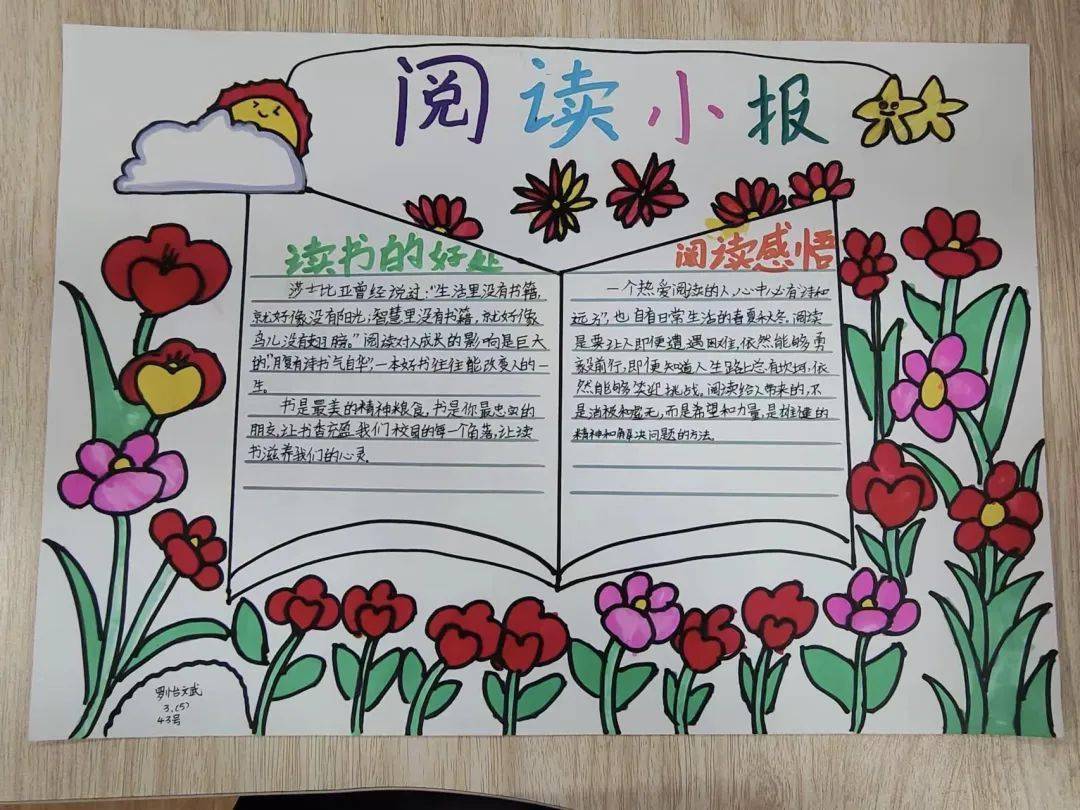 阅读小报
读书的好处
莎士比亚曾经说过:“生活里没有书籍,
就好像没有阳光;智慧里没有书籍,就好像
鸟儿没有翅膀。”阅读对人成长的影响是巨大
的,“腹有诗书气自华”,一本好书往往能改变人的一
生。
书是最美的精神粮食,书是你最忠实的
朋友,让书香充盈我们校园的每一个角落,让读
书滋养我们的心灵。
阅读感悟
一个热爱阅读的人,心中必有“诗和
远方”,也自有日常生活的春夏秋冬。阅读
是要让人即便遭遇困难,依然能够勇
毅前行,即便知道人生路上总有坎坷,依
然能够笑迎挑战。阅读给人带来的,不
是消极和虚无,而是希望和力量,是雄健的
精神和解决问题的方法。
罗怡文
3.(5)
43号